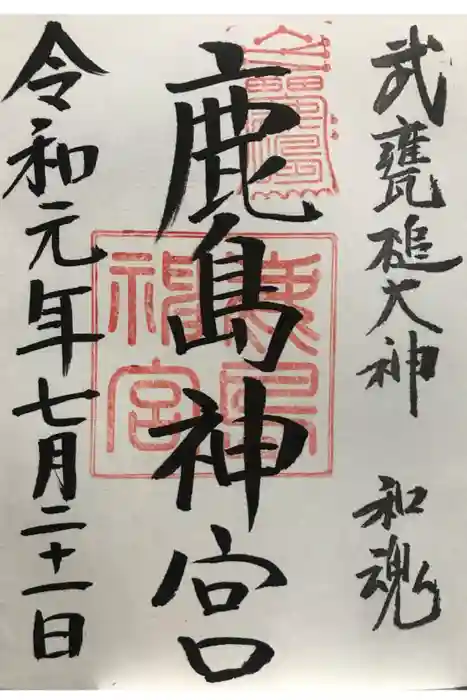 武甕槌大神　和魂
鹿島神宮
令和元年七月二十一日
鹿島神宮